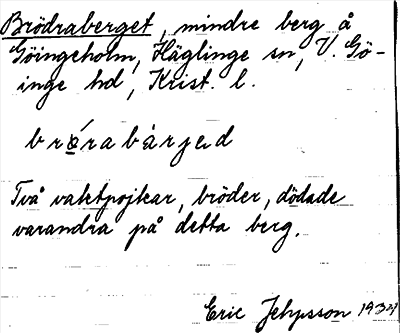 Brödraberget, mindre berg å
Göingeholm, Häglinge sn, V. Gö-
inge hd, Krist. l.
Två vaktpojkar, bröder, dödade
varandra på detta berg.
Eric Jehpsson